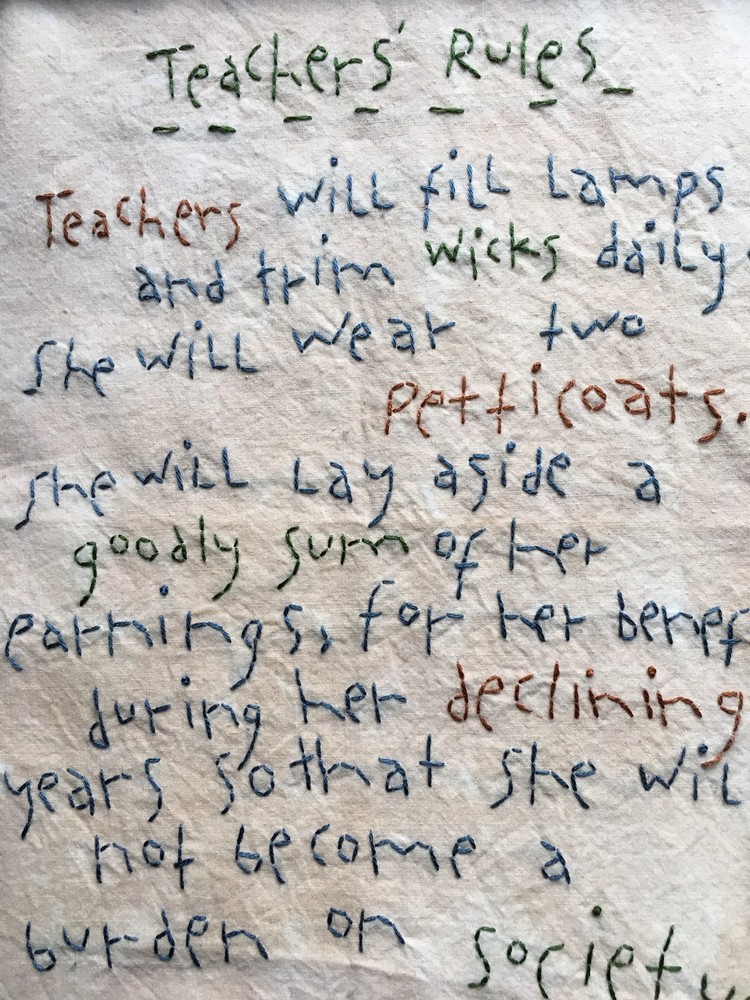 Teachers' Rules
Teachers will fill Lamps
and trim wicks daily.
She will wear two
petticoats.
She will Lay aside a
goodly sum of her
earnings, for her benef
during her declining
years so that she wil
not become a
burden on society